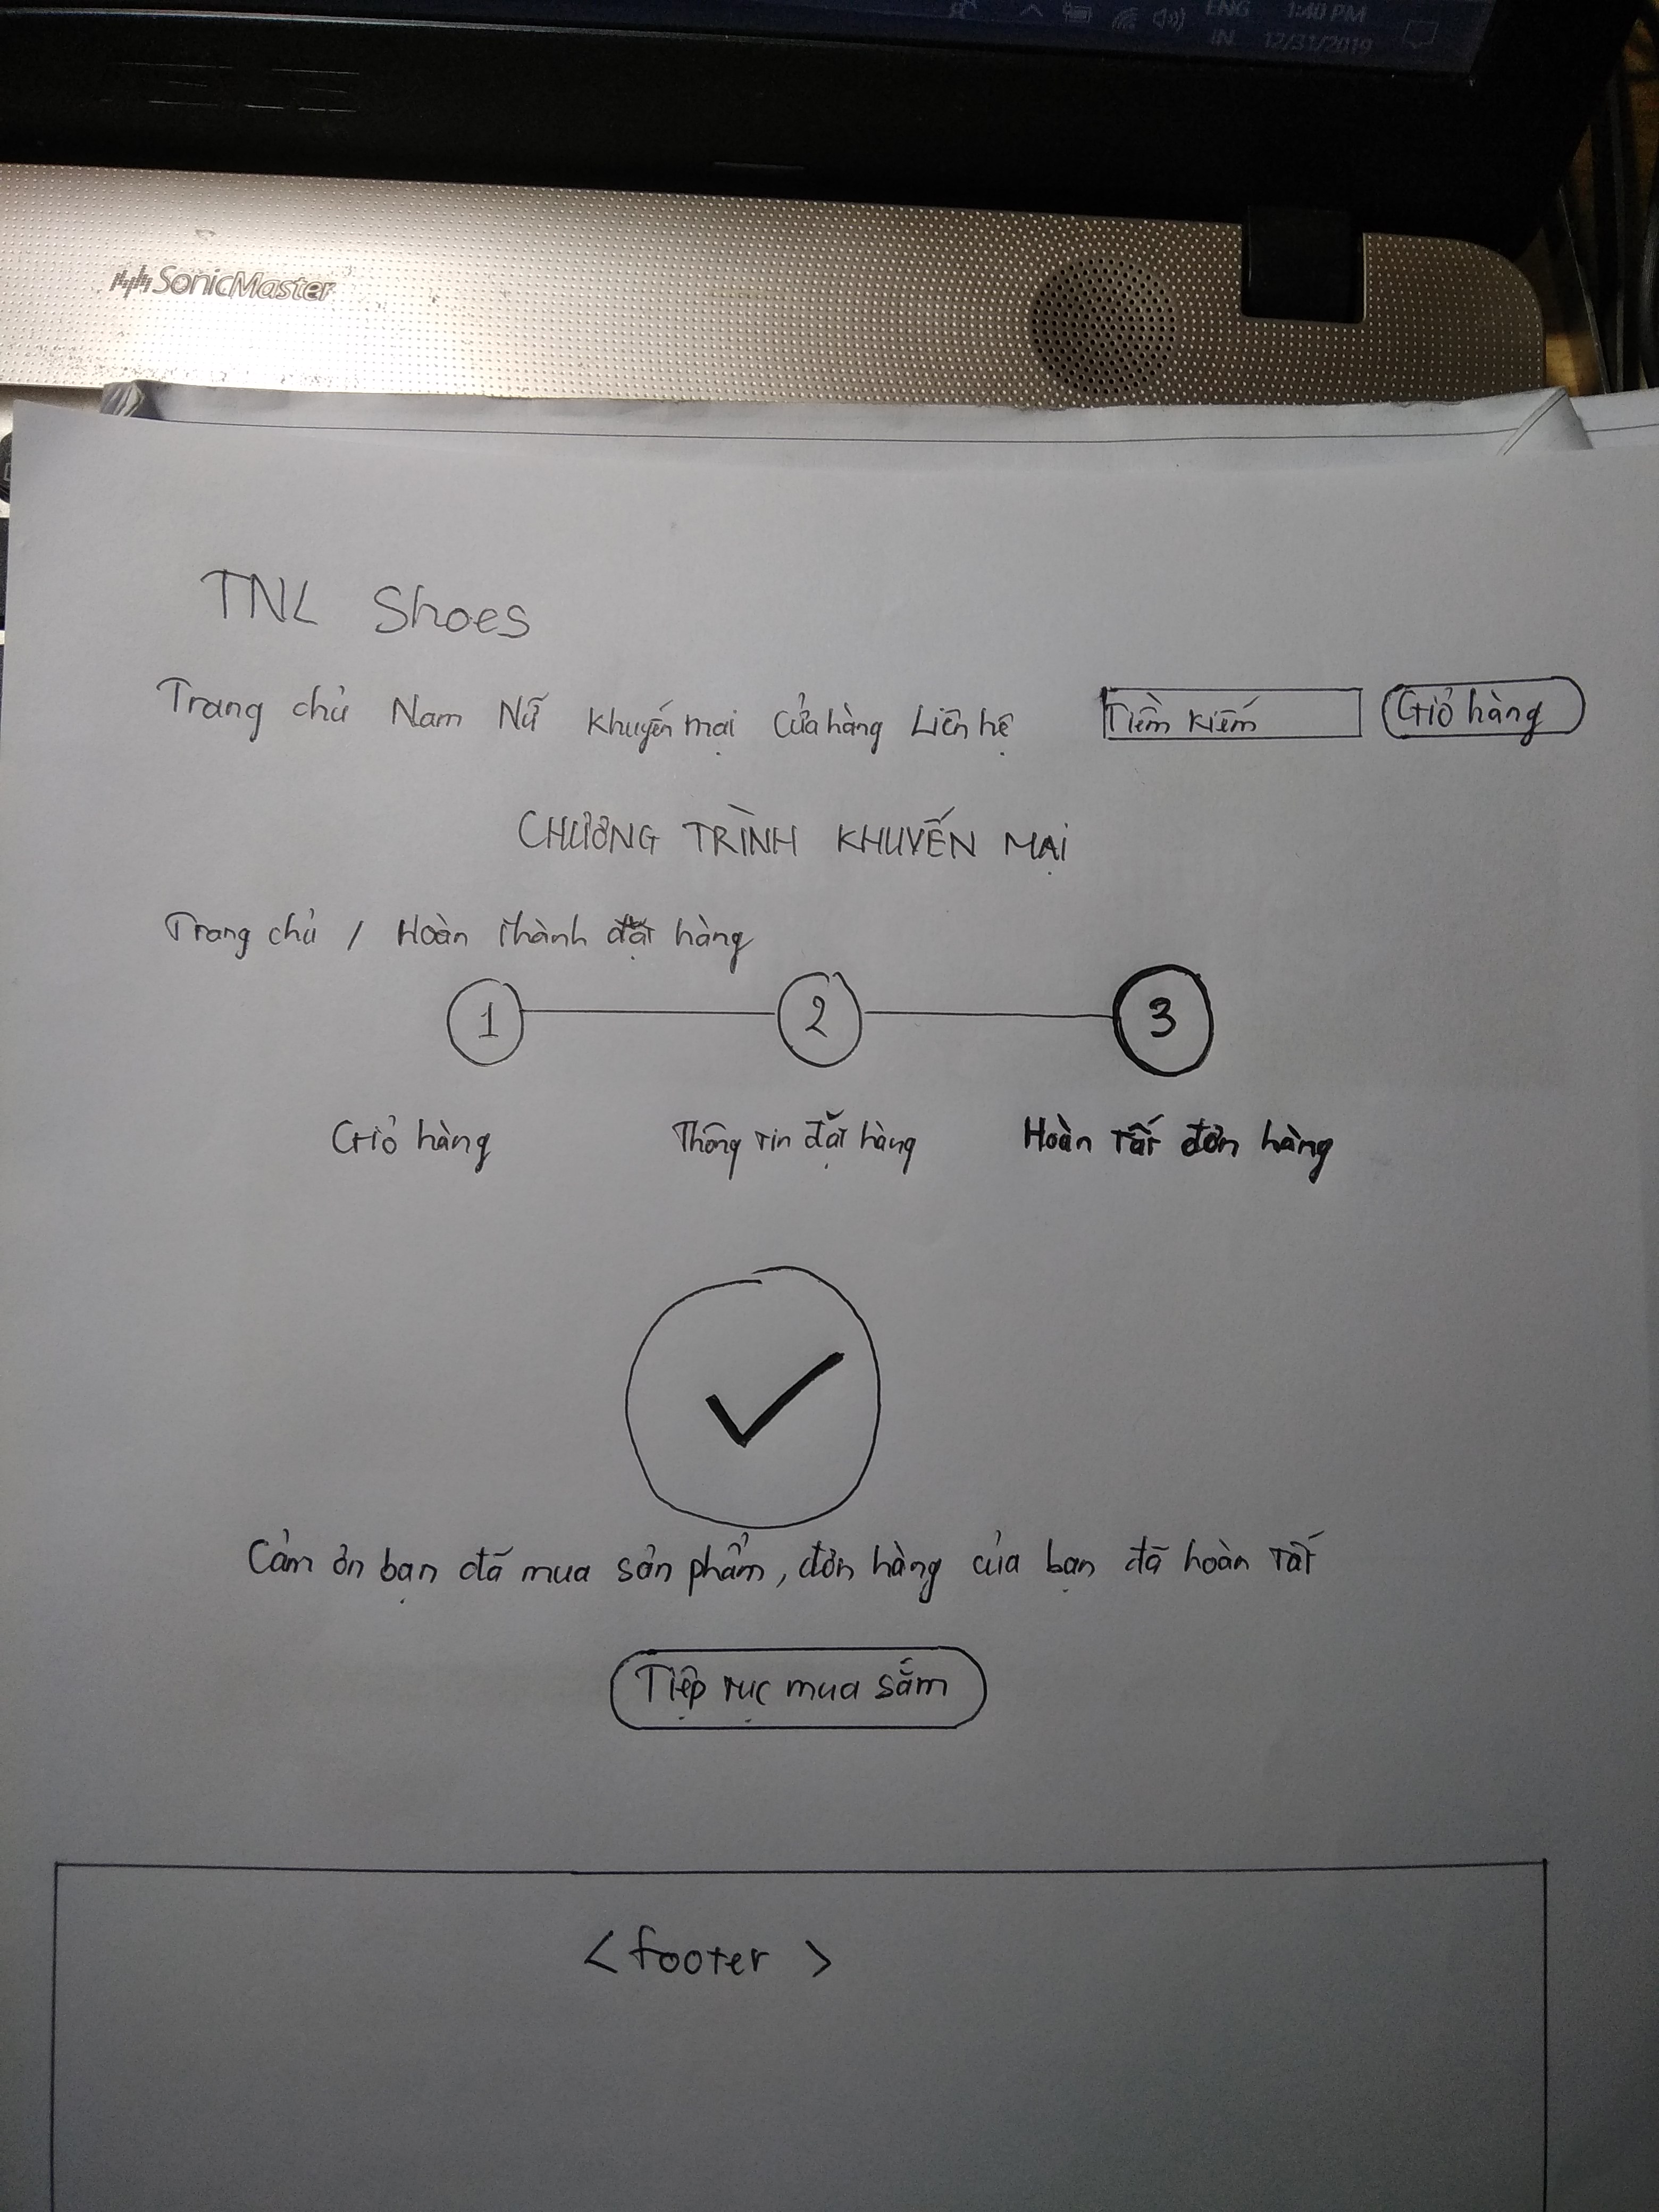 ENG 1:40 PM
IN 12/31/2019
SonicMaster
TNL Shoes
Trang chủ Nam Nữ Khuyến mại Cửa hàng Liên hệ Tiềm kiếm Giỏ hàng
CHƯƠNG TRÌNH KHUYẾN MẠI
Trang chủ / Hoàn thành đặt hàng
1 2 3
Giỏ hàng Thông tin đặt hàng Hoàn tất đơn hàng
Cảm ơn bạn đã mua sản phẩm, đơn hàng của bạn đã hoàn tất
Tiệp tục mua sắm
<footer>